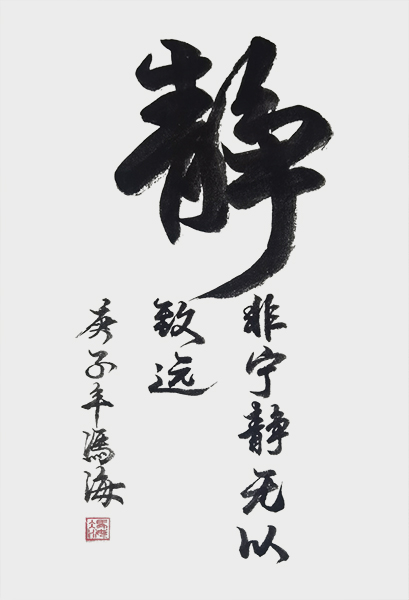 静
非宁静无以
致远
庚子年冯海